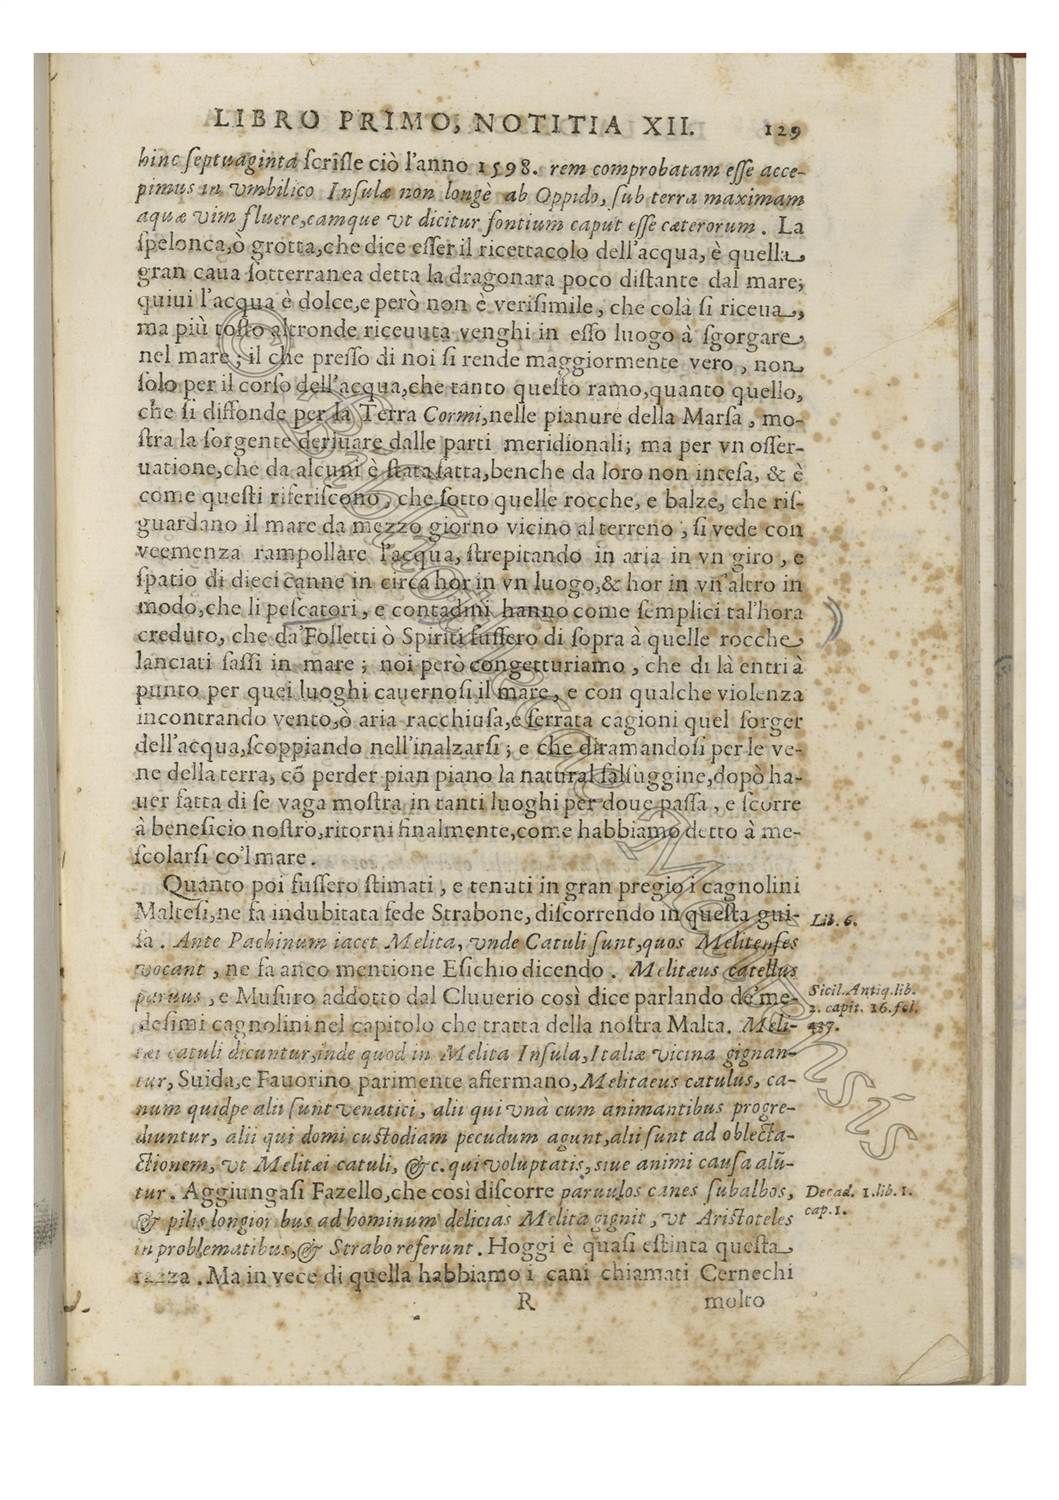 LIBRO PRIMO, NOTITIA XII. 129
hinc ſeptuaginta ſcriſſe ciò l'anno 1598. rem comprobatam eſſe acce-
pimus in vmbilico Inſulæ non longè ab Oppido, ſub terra maximam
aquæ vim fluere, eamque vt dicitur fontium caput eſſe cæterorum. La
ſpelonca, ò grotta, che dice eſſer il ricettacolo dell'acqua, è quella
gran caua ſotterranea detta la dragonara poco diſtante dal mare;
quiui l'acqua è dolce, e però non è veriſimile, che colà ſi riceua,
ma più toſto altronde riceuuta venghi in eſſo luogo à ſgorgare
nel mare; il che preſſo di noi ſi rende maggiormente vero, non
ſolo per il corſo dell'acqua, che tanto queſto ramo, quanto quello,
che ſi diffonde per la Terra Cormi, nelle pianure della Marſa, mo-
ſtra la ſorgente deriuare dalle parti meridionali; ma per vn oſſer-
uatione, che da alcuni è ſtata fatta, benche da loro non inteſa, & è
come queſti riferiſcono, che ſotto quelle rocche, e balze, che riſ-
guardano il mare da mezzo giorno vicino al terreno, ſi vede con
veemenza rampollare l'acqua, ſtrepitando in aria in vn giro, e
ſpatio di dieci canne in circa hor in vn luogo, & hor in vn'altro in
modo, che li peſcatori, e contadini hanno come ſemplici tal'hora
creduto, che da' Folletti ò Spiriti fuſſero di ſopra à quelle rocche
lanciati ſaſſi in mare; noi però congetturiamo, che di là entri à
punto per quei luoghi cauernoſi il mare, e con qualche violenza
incontrando vento, ò aria racchiuſa, e ſerrata cagioni quel ſorger
dell'acqua, ſcoppiando nell'inalzarſi; e che diramandoſi per le ve-
ne della terra, cõ perder pian piano la natural ſalſuggine, dopò ha-
uer fatta di ſe vaga moſtra in tanti luoghi per doue paſſa, e ſcorre
à beneficio noſtro, ritorni finalmente, come habbiamo detto à me-
ſcolarſi co'l mare.
Quanto poi fuſſero ſtimati, e tenuti in gran pregio i cagnolini
Malteſi, ne fa indubitata fede Strabone, diſcorrendo in queſta gui- Lib. 6.
ſa. Ante Pachinum iacet Melita, vnde Catuli ſunt, quos Melitenſes
vocant, ne fa anco mentione Eſichio dicendo. Melitæus catellus
paruus, e Muſuro addotto dal Cluuerio così dice parlando de' me- Sicil. Antiq. lib.
2. capit. 16. fol.
deſimi cagnolini nel capitolo che tratta della noſtra Malta. Meli- 437.
tæi catuli dicuntur, inde quod in Melita Inſula, Italiæ vicina gignan-
tur, Suida, e Fauorino parimente affermano, Melitaeus catulus, ca-
num quidpe alii ſunt venatici, alii qui vnà cum animantibus progre-
diuntur, alii qui domi cuſtodiam pecudum agunt, alii ſunt ad oblecta-
ctionem, vt Melitæi catuli, &c. qui voluptatis, siue animi cauſa alũ-
tur. Aggiungaſi Fazello, che così diſcorre paruulos canes ſubalbos, Decad. 1. lib. 1.
& pilis longioribus ad hominum delicias Melita gignit, vt Ariſtoteles cap. 1.
in problematibus, & Strabo referunt. Hoggi è quaſi eſtinta queſta
razza. Ma in vece di quella habbiamo i cani chiamati Cernechi
R molto